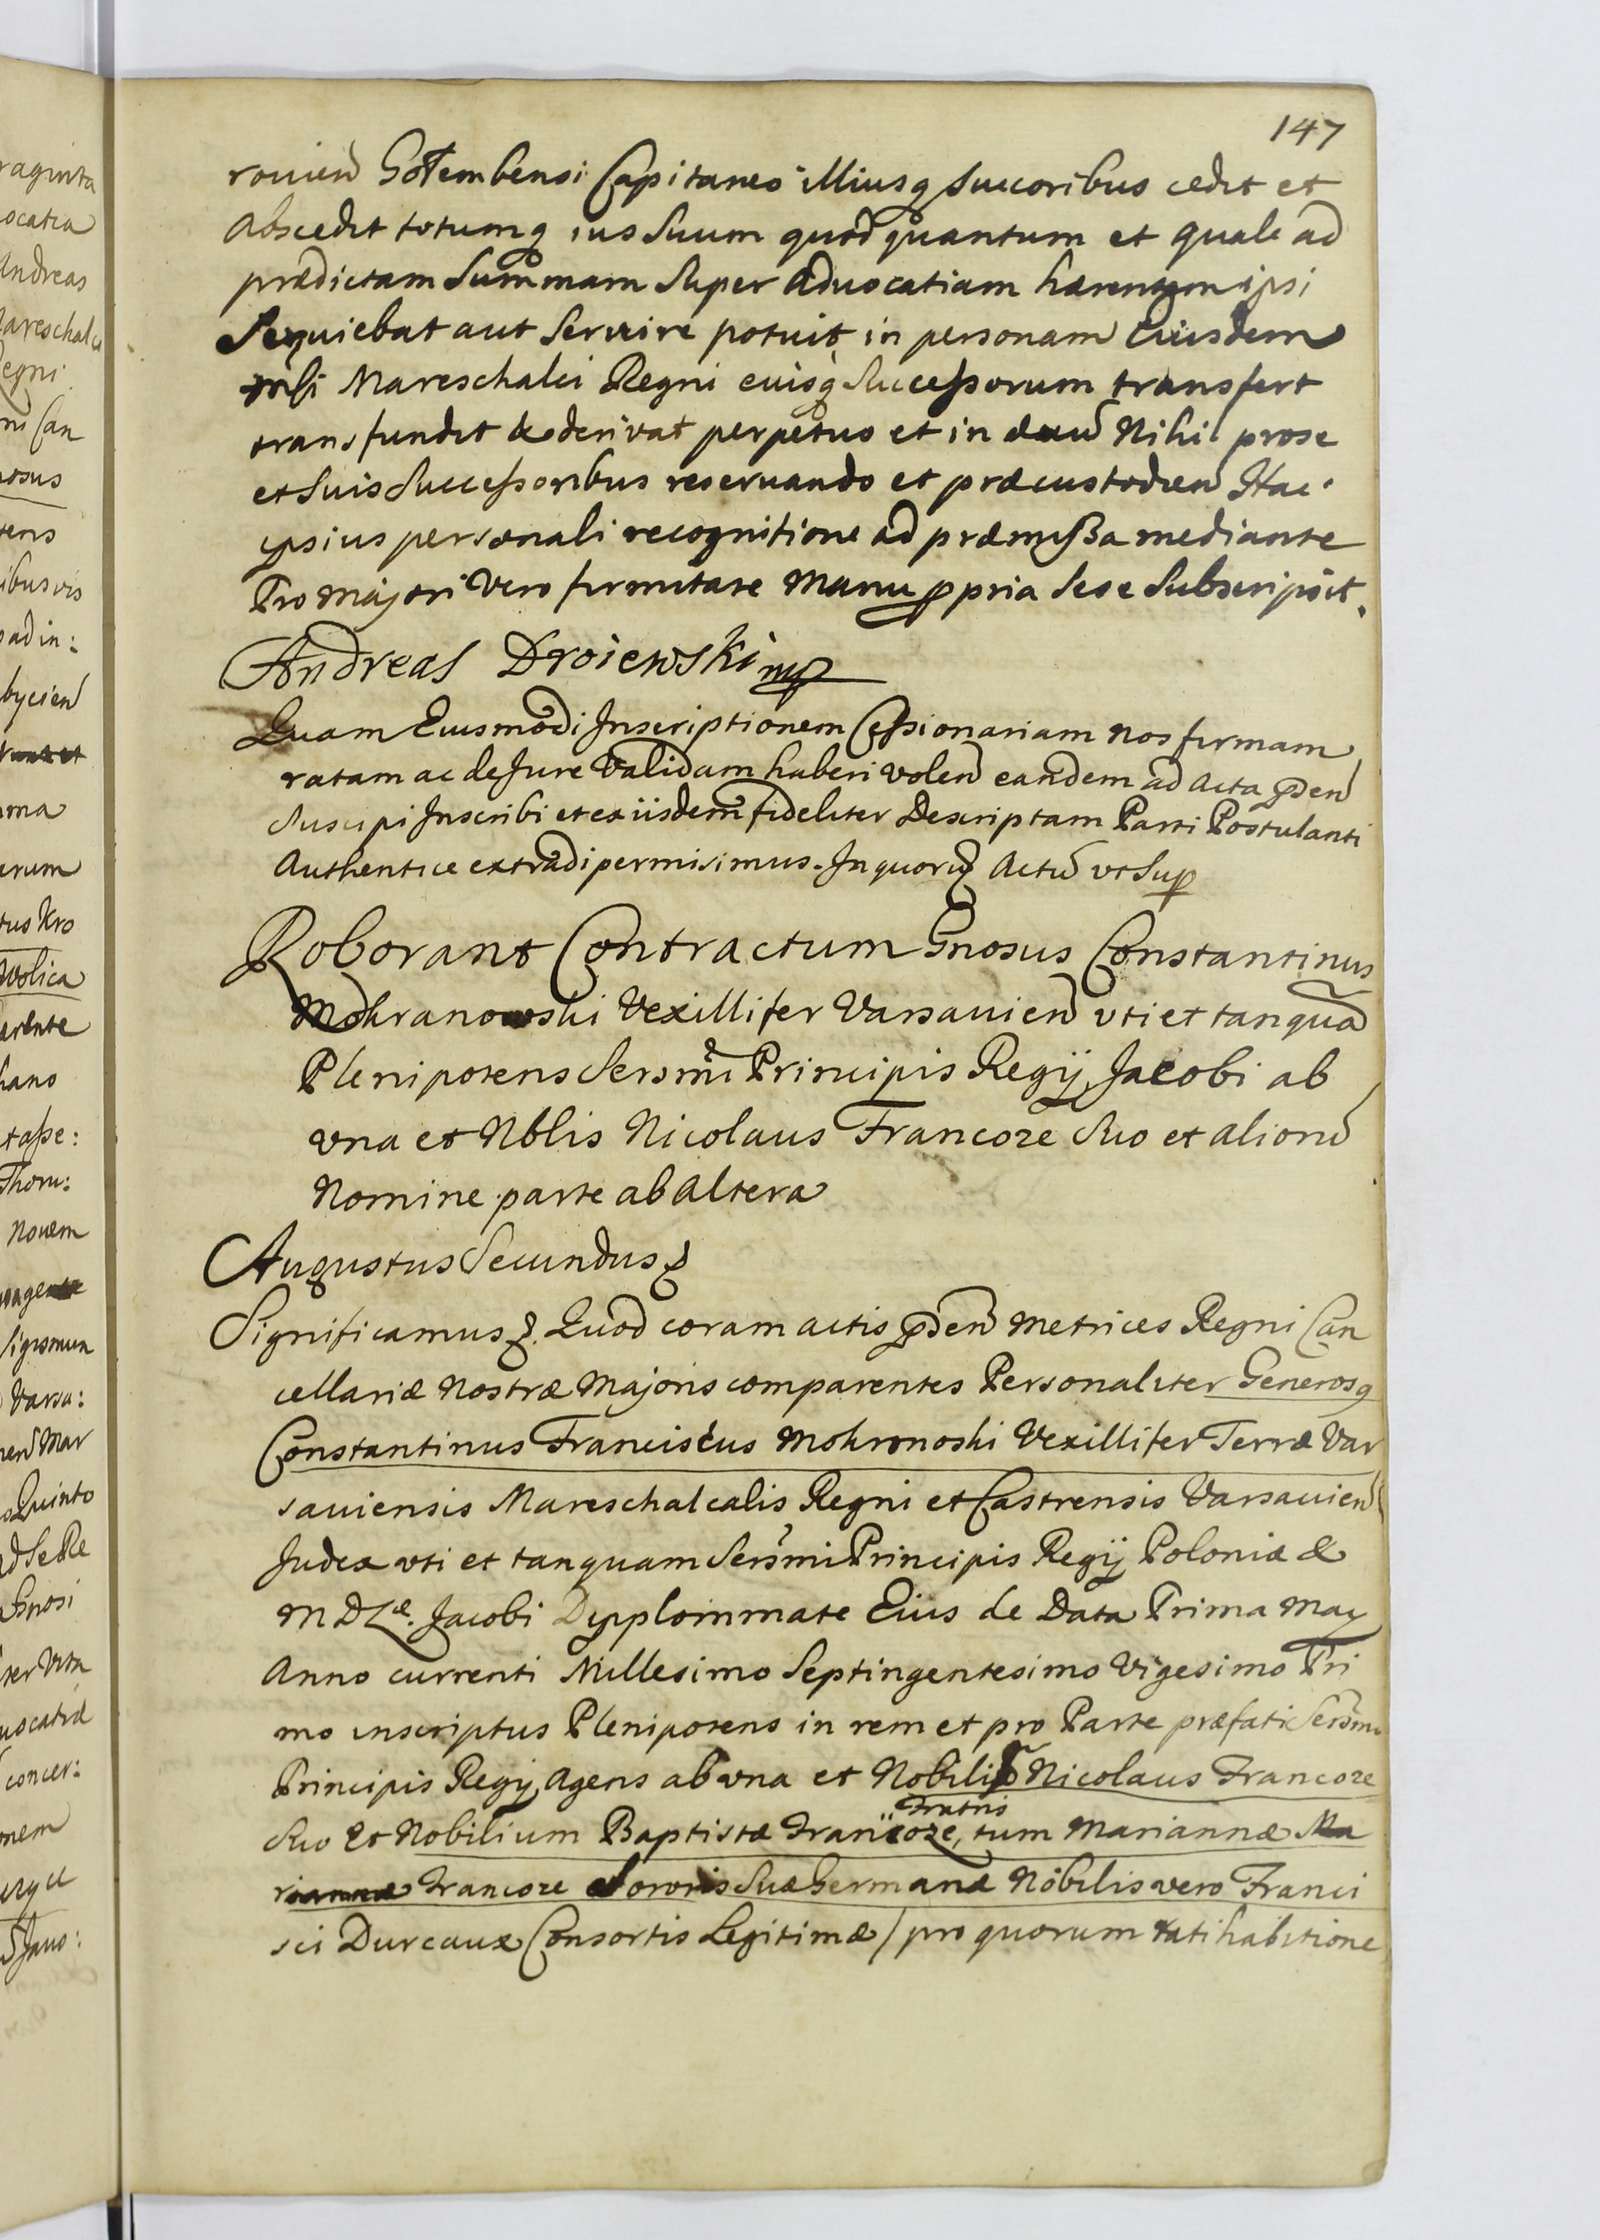 147
rovien Gotembensi Capitaneo illiusq Succoribus cedit et
Abscedit totumq ius Suum quod quantum et quale ad
prædictam Summam Super Advocatiam hærentem ipsi
Serviebat aut Servire potuit in personam Eiusdem
Mareschalci Regni euisq Successorum transfert
transfundit & derivat perpetuo et in Nihil pro se
et Suis Successoribus reservando et præcustodien Hac
ypsius personali recognitione ad præmissa mediante
Pro Majori Vero firmitate Manu ppria Sese Subscripsit.
Andreas Droiewski mp
Quam Eiusmodi Inscriptionem Cessionariam Nos firmam
ratam ac de Jure Validam haberi volen eandem ad Acta pden
Suscipi Inscribi et ex iisdem fideliter Descriptam Parti Postulanti
Authentice extradi permisimus. In quorũ Actũ vt Sup
Roborant Contractum Gnosus Constantinus
Mokranowski Vexillifer Varsavien vti et tanquã
Plenipotens Sersmi Principis Regij Jacobi ab
vna et Nblis Nicolaus Francoze Suo et alionũ
Nomine parte ab Altera
Augustus Secundus
Significamus Quod coram actis pden Metrices Regni Can
cellariæ Nostræ Majoris comparentes Personaliter Generosq
Constantinus Franciscus Mokronoski Vexillifer Terræ Var
saviensis Mareschalcalis Regni et Castrensis Varsavien
Judex vti et tanquam Sersmi Principis Regij Poloniæ &
M D L æ. Jacobi Dyploimmate Eius de Data Prima May
Anno currenti Millesimo Septingentesimo Vigesimo Pri
mo inscriptus Plenipotens in rem et pro Parte præfati Sersmi
Principis Regij Agens ab vna et Nobilis Nicolaus Francoze
Fratris
Suo Et Nobilium Baptistæ Francoze, tum Mariannæ Ma
riannæ Francoze Sororis Suæ Germanæ Nobilis vero Franci
sci Dureaux Consortis Legitimæ / pro quorum ratihabitione